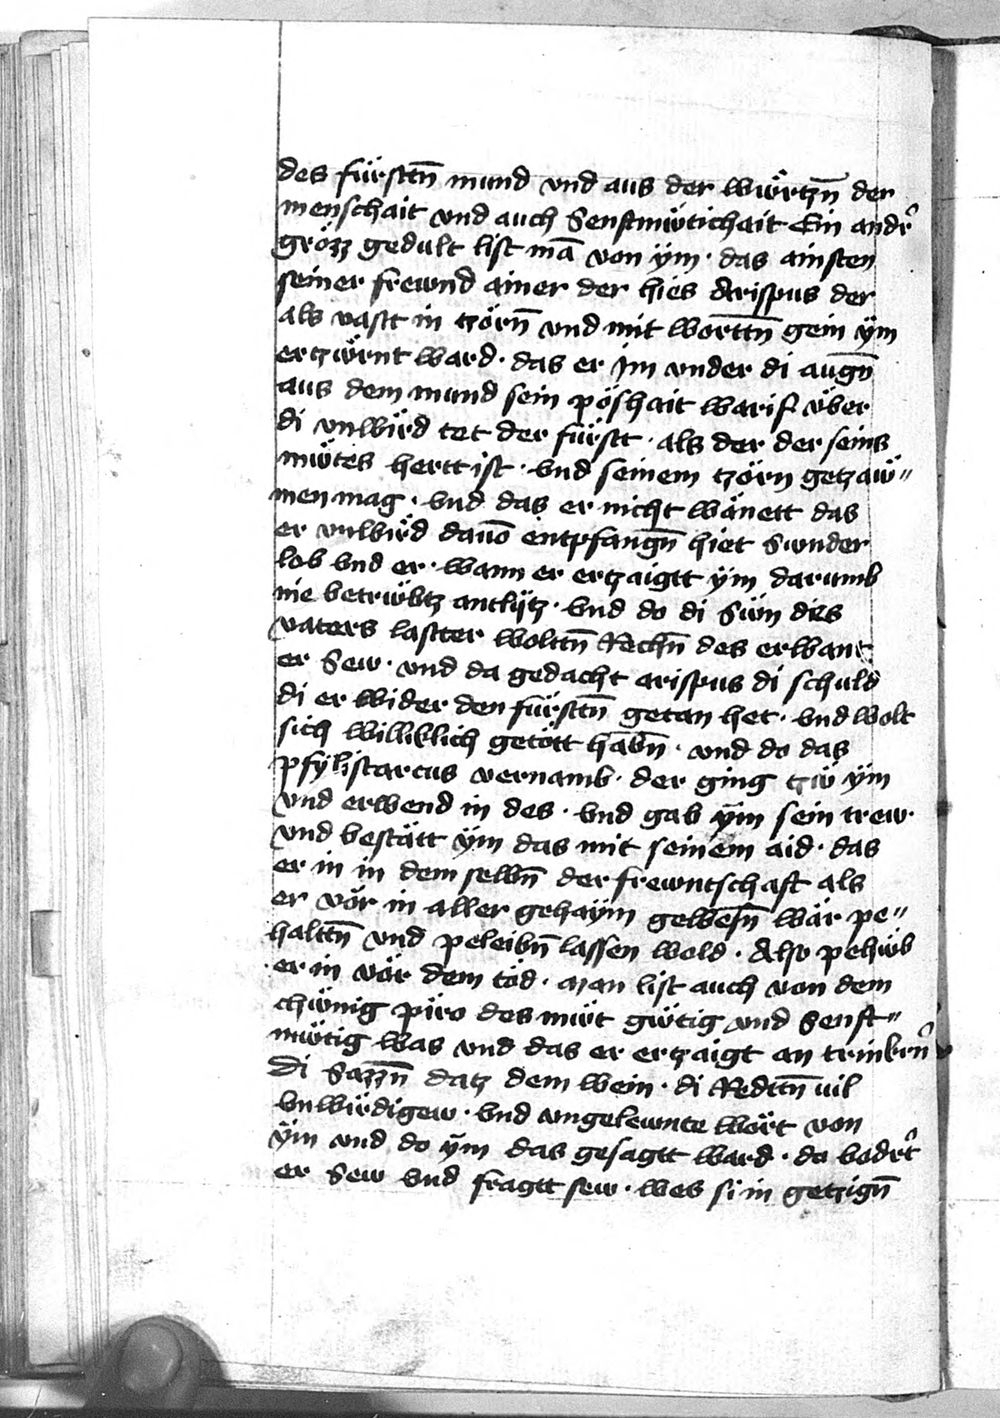 des fürsttn̄ mund vnd aus der würtzn̄ der
menschait vnd auch Senftmütichait Ein andr᷑
grözz gedult list mā von ÿm · das ainsten
seiner frewnd ainer der hies Arispus der
als vastt in tzörn̄ vnd mit worttn̄ gein ÿm
ertzürnt ward · das er im vnder di augn̄
aus dem mund sein pöshait warif über
di vnwird tet der fürstt · als der der seins
mütes hertt ist · vnd seinem tzörn getzaw̎ =
men mag · vnd das er nicht wänett das
er vnwird dauō entpfangn̄ hiet Sunder
lob vnd er · wann er ertzaigtt ÿm darumb
nie betrübtz antlÿtz · vnd do di Sün dies
vaters lastter wolttn̄ Rechn̄ des erwant
er Sew · vnd da gedacht arispus di schuld
di er wider den fürsttn̄ getan het · vnd wolt
sich williklich getött habn̄ · vnd do das
pfÿlistarcus vernamb · der ging tzü ÿm
vnd erwend in des · vnd gab ÿm sein trew ·
vnd bestätt ÿm das mit seinem aid · das
er in in dem selbn̄ der frewntschaft als
er vör in aller gehaÿm gewesn̄ wär pe=
halttn̄ vnd peleibn̄ lassen wold · Also pehüb
er in vör dem töd · man list auch von dem
chünig püro des müt gütig vnd Senft=
mütig was vnd das er ertzaigt an trinkrn᷑
di Sazzn̄ datz dem wein · di Redttn̄ vil
vnwirdigew · vnd vngelewnte wört von
ÿm vnd do ÿm das gesagtt ward · da vodr᷑t
er Sew vnd fragtt sew · wes si in getzign̄